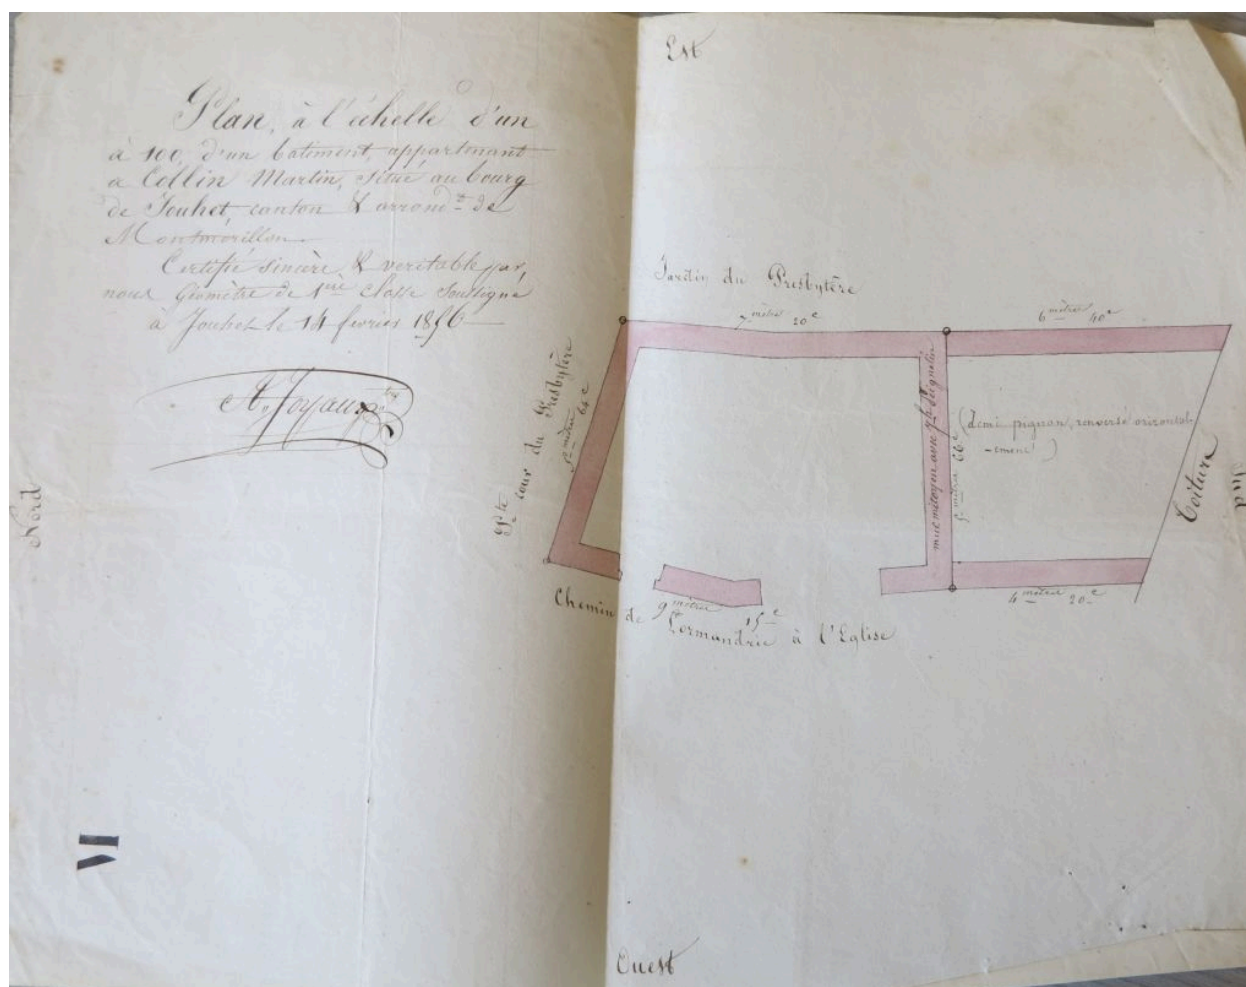 Plan, à l'échelle d'un
à 100, d'un batiment, appartenant
a Collin Martin, situé au bourg
de Jouhet, canton & arrond.t de
Montmorillon.
Certifié sincère & veritable par,
nous Géomètre de 1ère classe soussigné
à Jouhet le 14 fevrier 1856
Est
Jardin du Presbytère
7 mètres 20 c
6 mètres 40 c
Pte cour du Presbytère
5 mètres 64 c
mur mitoyen avec
5 mètres 66 c
(demi pignon, renversé orizontal-
-ement)
Toiture
Nord
Sud
4 mètres 20 c
9 mètres 15 c
Chemin de Lormandrie à l'Eglise
VI
Ouest